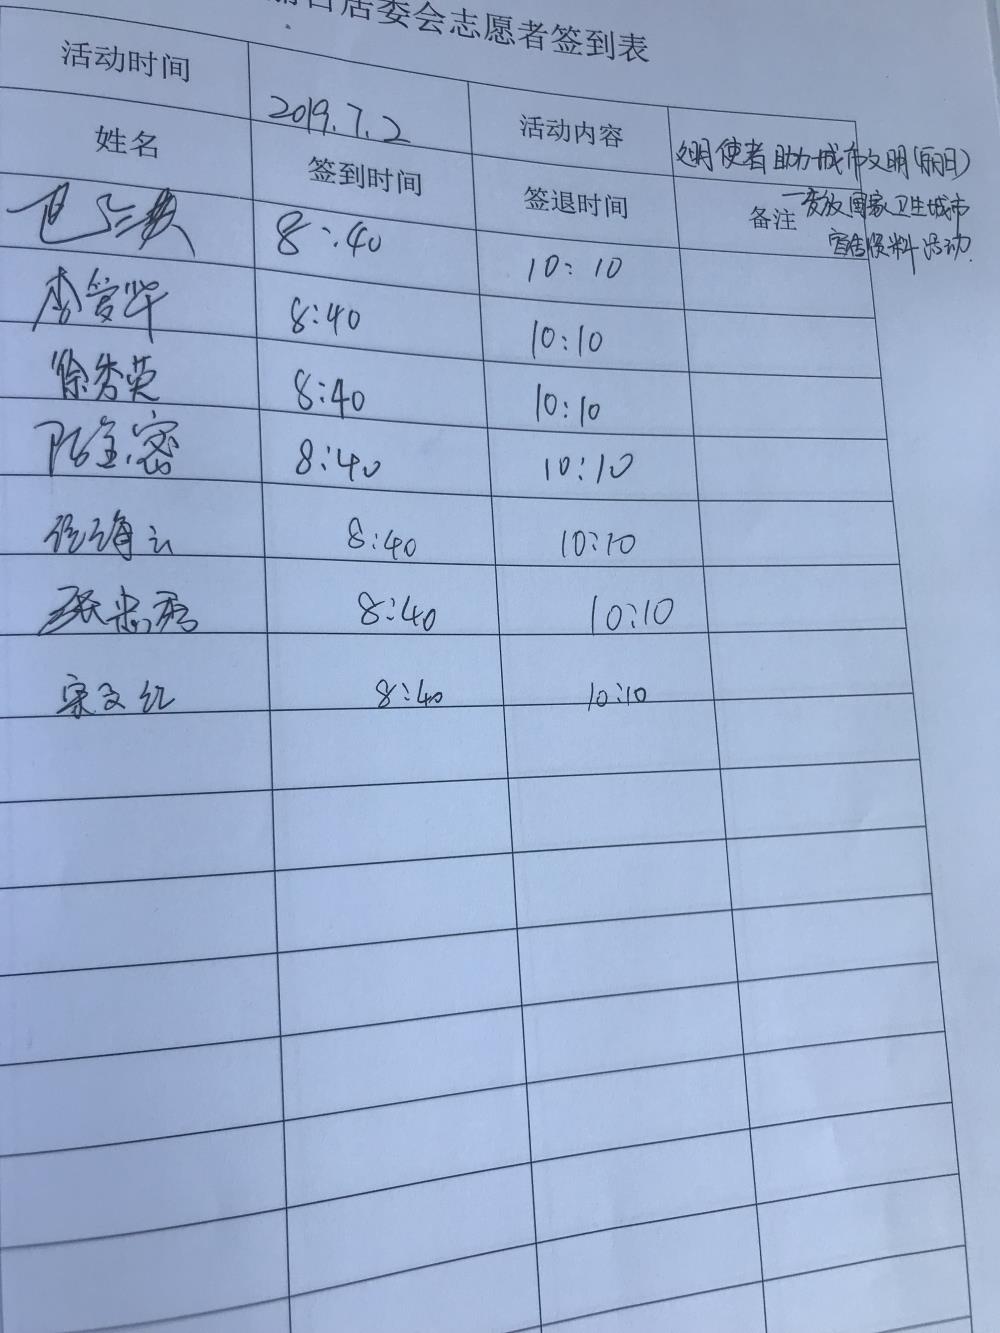 居委会志愿者签到表
活动时间 2019.7.2 活动内容 文明使者助力城市文明(丽日)
一发放国家卫生城市
宣传资料活动.
姓名 签到时间 签退时间 备注
8:40 10:10
李爱华 8:40 10:10
徐秀英 8:40 10:10
8:40 10:10
8:40 10:10
张忠秀 8:40 10:10
宋文红 8:40 10:10